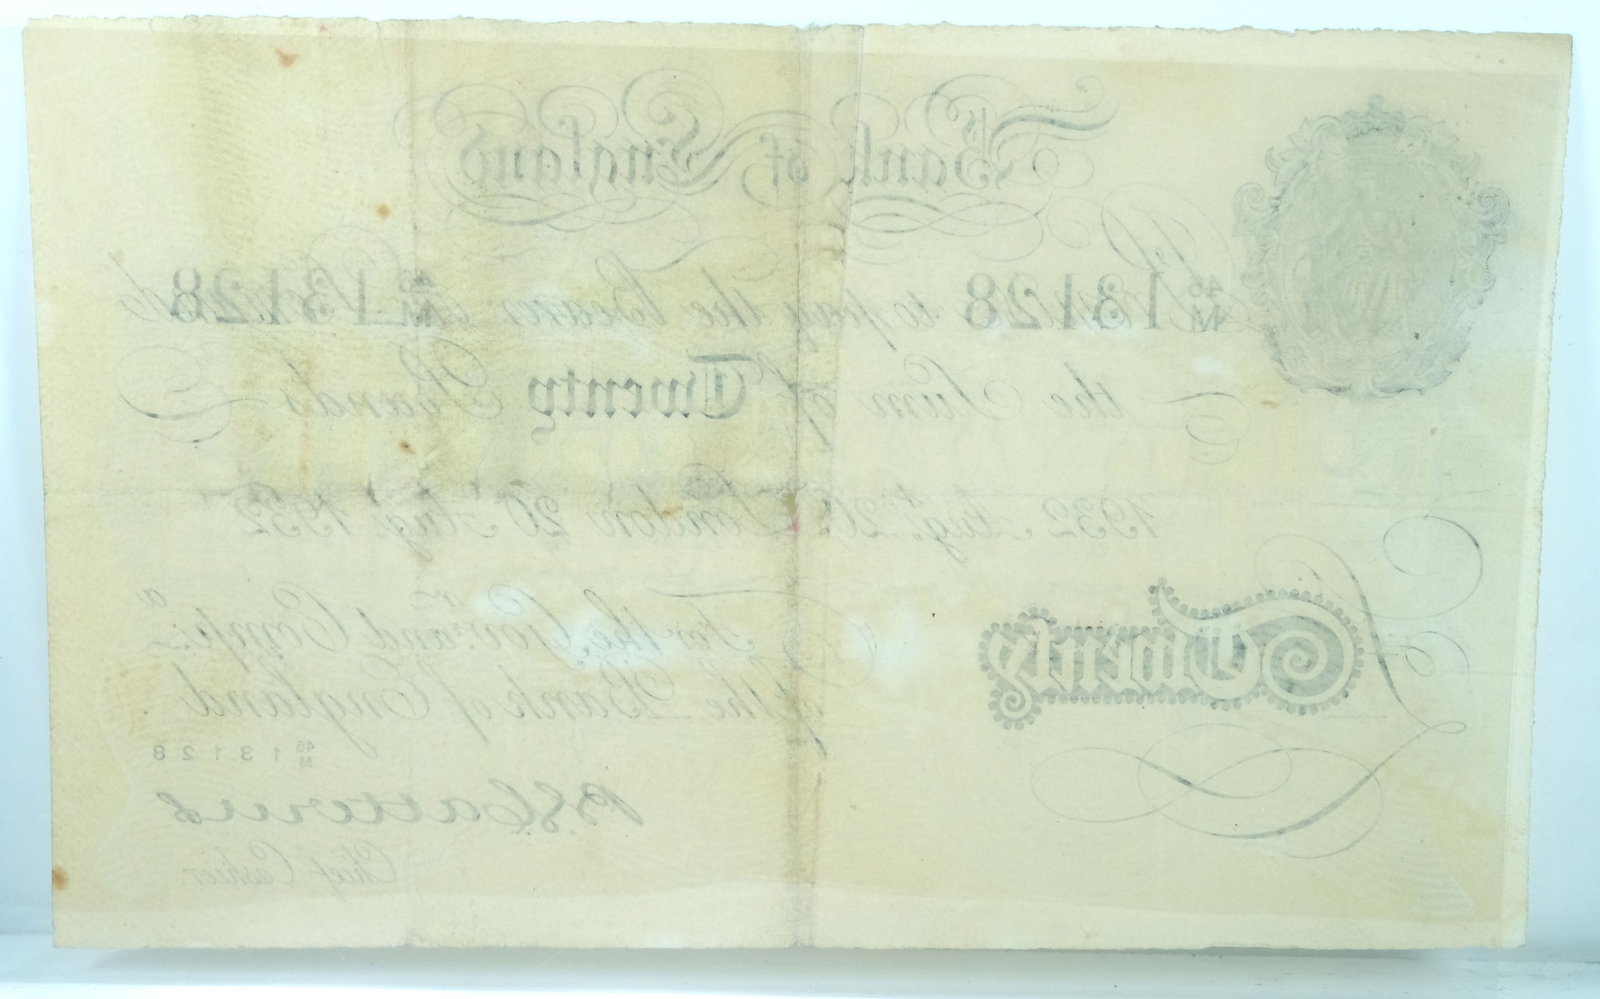 Bank of England
46 M 13128 I Promise to pay the Bearer on Demand 46 M 13128
the Sum of Twenty Pounds
1932 Aug. 20 London 20 Aug. 1932
For the Gov.r and Comp.a
of the Bank of England
Twenty
46 M 13128
B G Catterns
Chief Cashier.